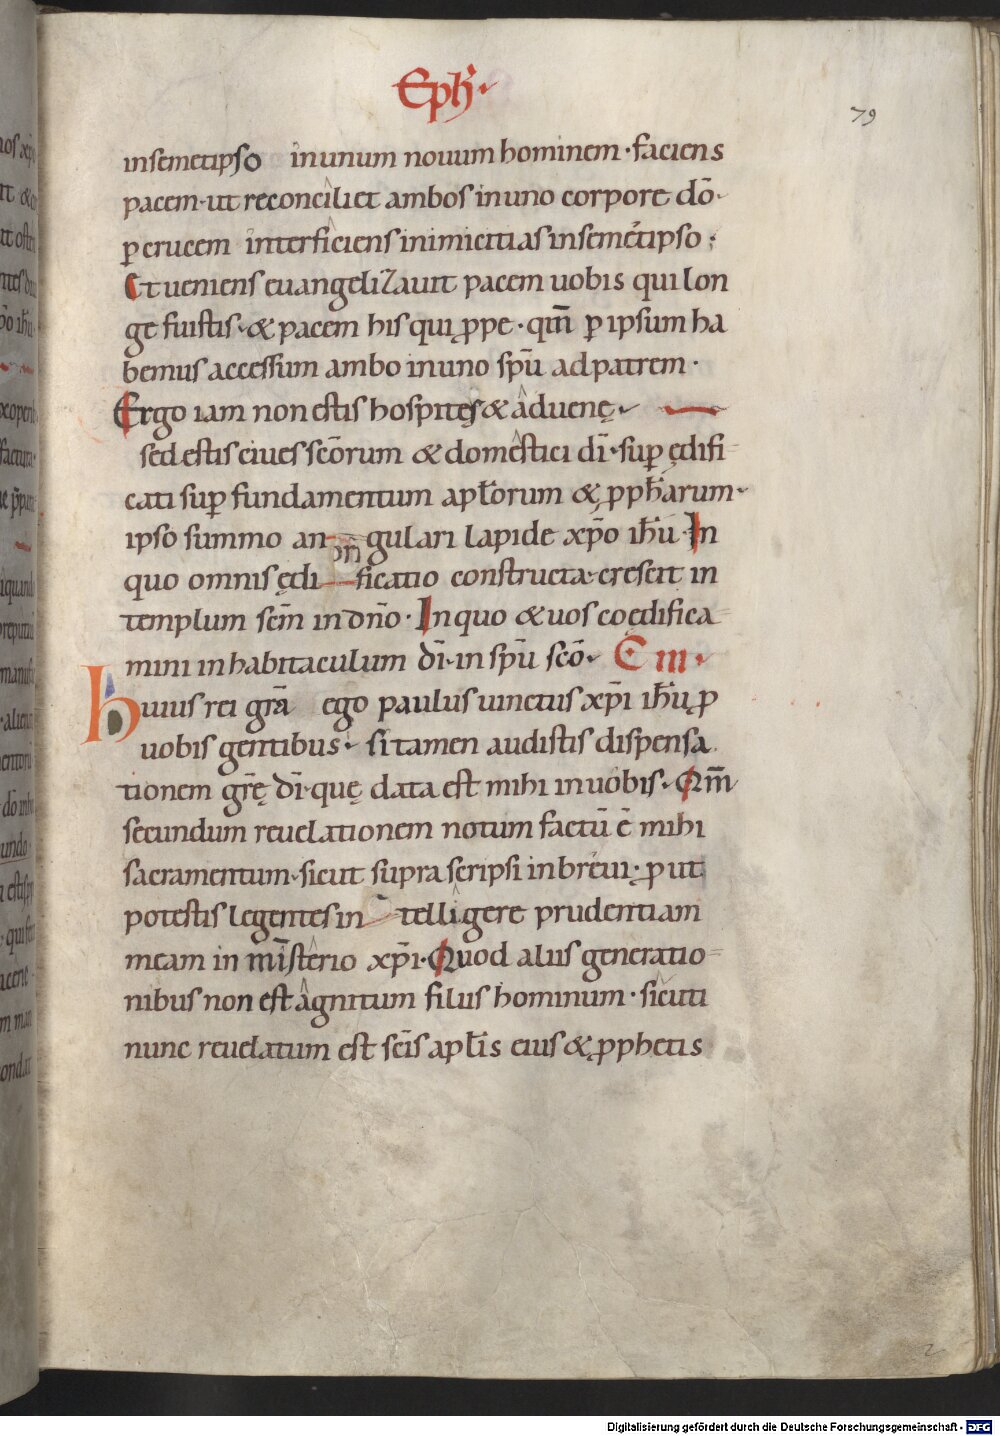 Eph̄.
79
insemetipso inunum nouum hominem · faciens
pacem · ut reconciliet ambos inuno corpore dō ·
ꝑ crucem interficiens inimicitias insemetipso :
Et ueniens euangelizauit pacem uobis qui lon
ge fuistis · & pacem his qui ꝓpe · qm̄ ꝑ ipsum ha
bemus accessum ambo inuno spū ad patrem ·
Ergo iam non estis hospitęs & aduenę ·
sed estis ciues scōrum & domestici dī · suꝑ ędifi
cati suꝑ fundamentum apl̄orum & ꝓph̄arum ·
ipso summo angulari lapide xp̄o ih̄u · In
quo omnis ędificatio constructa · crescit in
templum scm̄ in dn̄o · In quo & uos coędifica
mini in habitaculum dī · in spū scō · C III ·
huius rei grā ego paulus uinctus xp̄i ih̄u ꝓ
uobis gentibus · si tamen audistis dispensa
tionem grę̄ dī · quę data est mihi in uobis · Qm̄
secundum reuelationem notum factū ē mihi
sacramentum · sicut supra scripsi in breui · ꝓ ut
potestis legentes intelligere prudentiam
meam in misterio xp̄i · Quod aliis generatio
nibus non est agnitum filiis hominum · sicuti
nunc reuelatum est scīs apl̄is eius & ꝓphetis
2
Digitalisierung gefördert durch die Deutsche Forschungsgemeinschaft - DFG